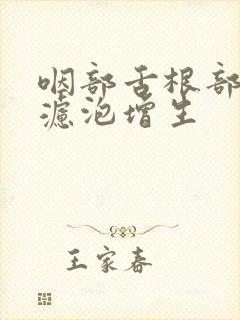 咽部舌根部
滤泡增生
王家春